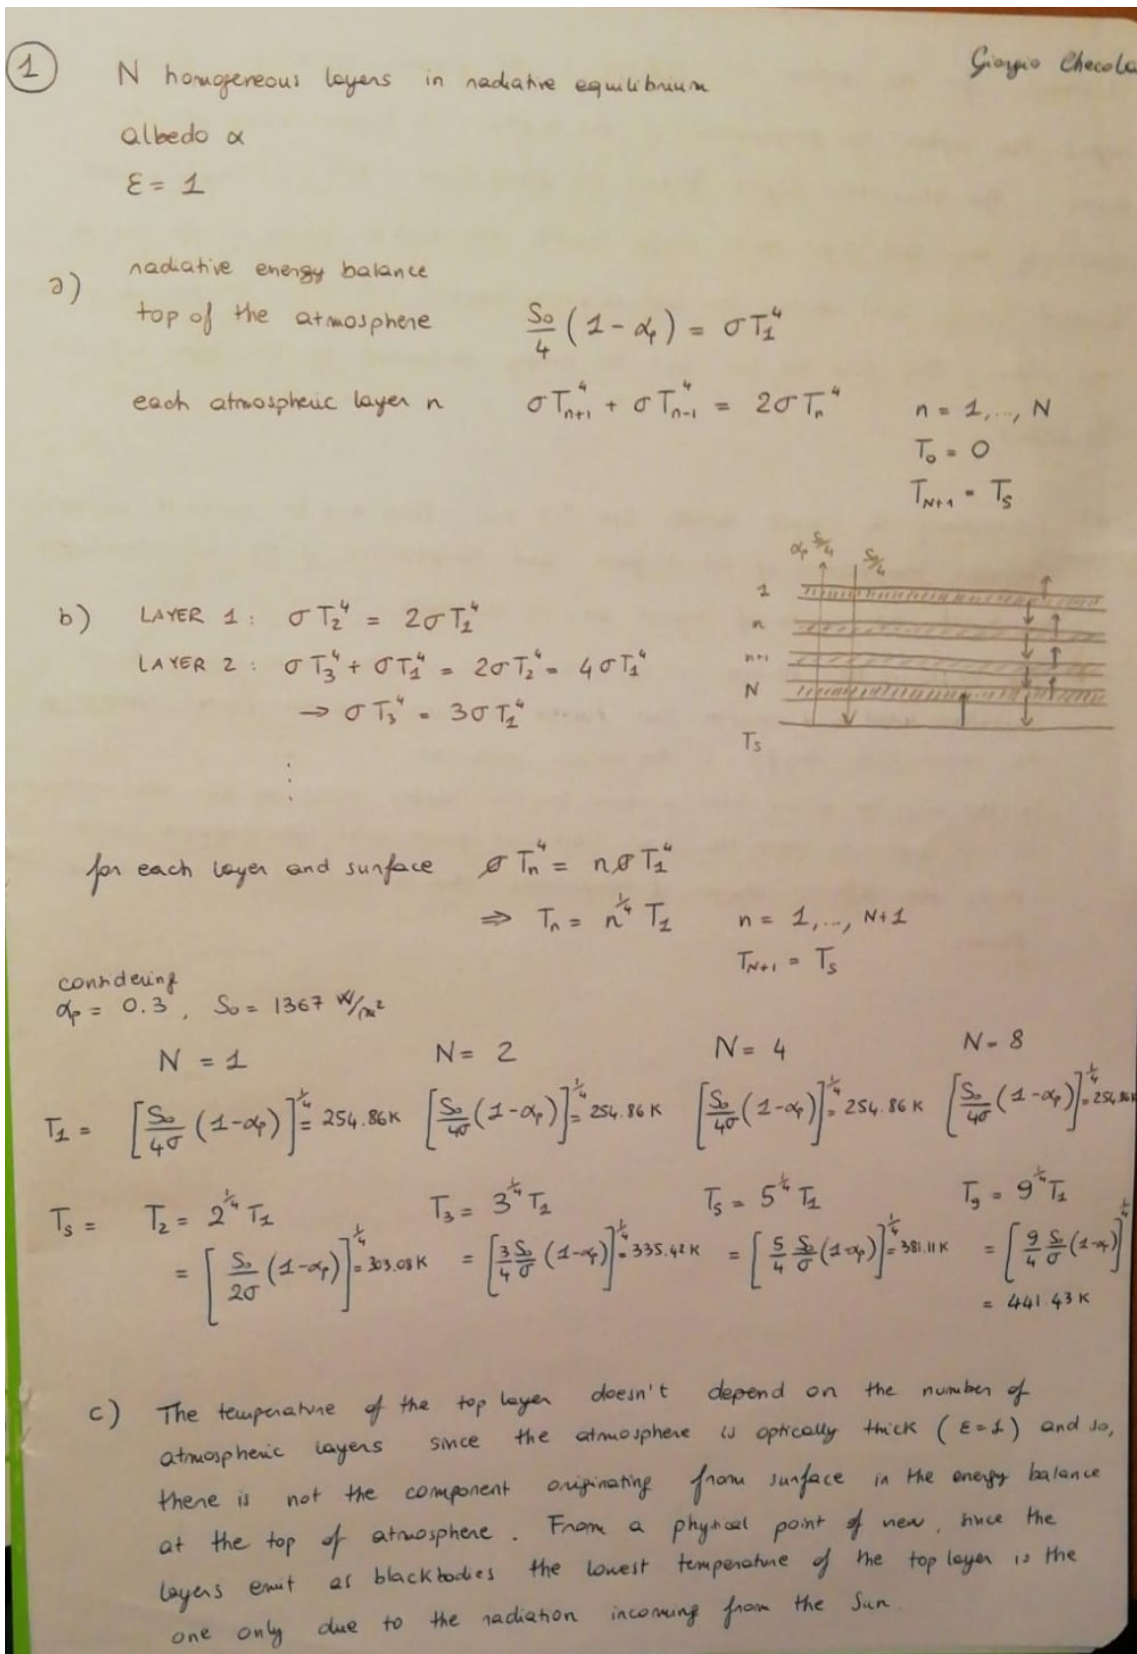 1
Giorgio Checola
N homogeneous layers in radiative equilibrium
albedo α
ε = 1
a)
radiative energy balance
top of the atmosphere S₀/4 (1 - αₚ) = σT₁⁴
each atmospheric layer n σTₙ₊₁⁴ + σTₙ₋₁⁴ = 2σTₙ⁴ n = 1,..., N
T₀ = 0
T_N+1 = Tₛ
αₚ S/4 S/4
1
n
n+1
N
Tₛ
b) LAYER 1: σT₂⁴ = 2σT₁⁴
LAYER 2: σT₃⁴ + σT₁⁴ = 2σT₂⁴ = 4σT₁⁴
→ σT₃⁴ = 3σT₁⁴
⋮
for each layer and surface σTₙ⁴ = nσT₁⁴
⇒ Tₙ = n^¼ T₁ n = 1,..., N+1
T_N+1 = Tₛ
considering
αₚ = 0.3, S₀ = 1367 W/m²
N = 1 N = 2 N = 4 N = 8
T₁ = [S₀/4σ (1-αₚ)]^¼ = 254.86 K [S₀/4σ (1-αₚ)]^¼ = 254.86 K [S₀/4σ (1-αₚ)]^¼ = 254.86 K [S₀/4σ (1-αₚ)]^¼ = 254.86 K
Tₛ = T₂ = 2^¼ T₁ T₃ = 3^¼ T₁ T₅ = 5^¼ T₁ T₉ = 9^¼ T₁
= [S₀/2σ (1-αₚ)]^¼ = 303.08 K = [3/4 S₀/σ (1-αₚ)]^¼ = 335.42 K = [5/4 S₀/σ (1-αₚ)]^¼ = 381.11 K = [9/4 S₀/σ (1-αₚ)]^¼
= 441.43 K
c) The temperature of the top layer doesn't depend on the number of
atmospheric layers since the atmosphere is optically thick (ε=1) and so,
there is not the component originating from surface in the energy balance
at the top of atmosphere. From a physical point of view, since the
layers emit as blackbodies the lowest temperature of the top layer is the
one only due to the radiation incoming from the Sun.